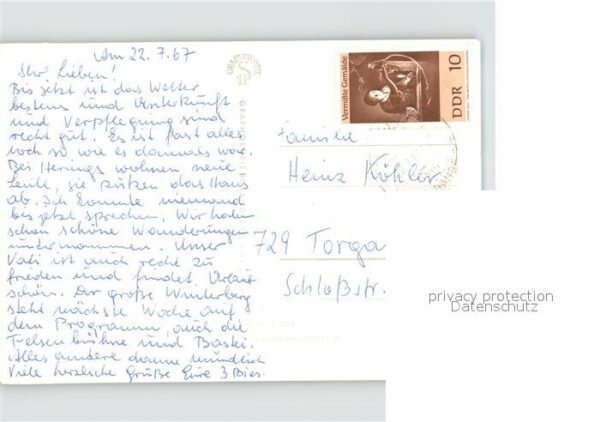 Am 22.7.67
Ihr Lieben!
Bis jetzt ist das Wetter
bestens und Unterkunft
und Verpflegung sind
recht gut. Es ist fast alles
noch so wie es damals war.
Bei Herings wohnen neue
Leute, sie putzen das Haus
ab. Ich konnte niemand
bis jetzt sprechen. Wir haben
schon schöne Wanderungen
unternommen. Unser
Vati ist auch recht zu
frieden und findet Urlaub
schön. Der große Winterberg
steht nächste Woche auf
dem Programm, auch die
Felsenbühne und Bastei.
Alles andere dann mündlich
Viele herzliche Grüße Eure 3
Vermißte Gemälde
DDR 10
Familie
Heinz Köhler
729 Torgau
Schloßstr.
privacy protection
Datenschutz